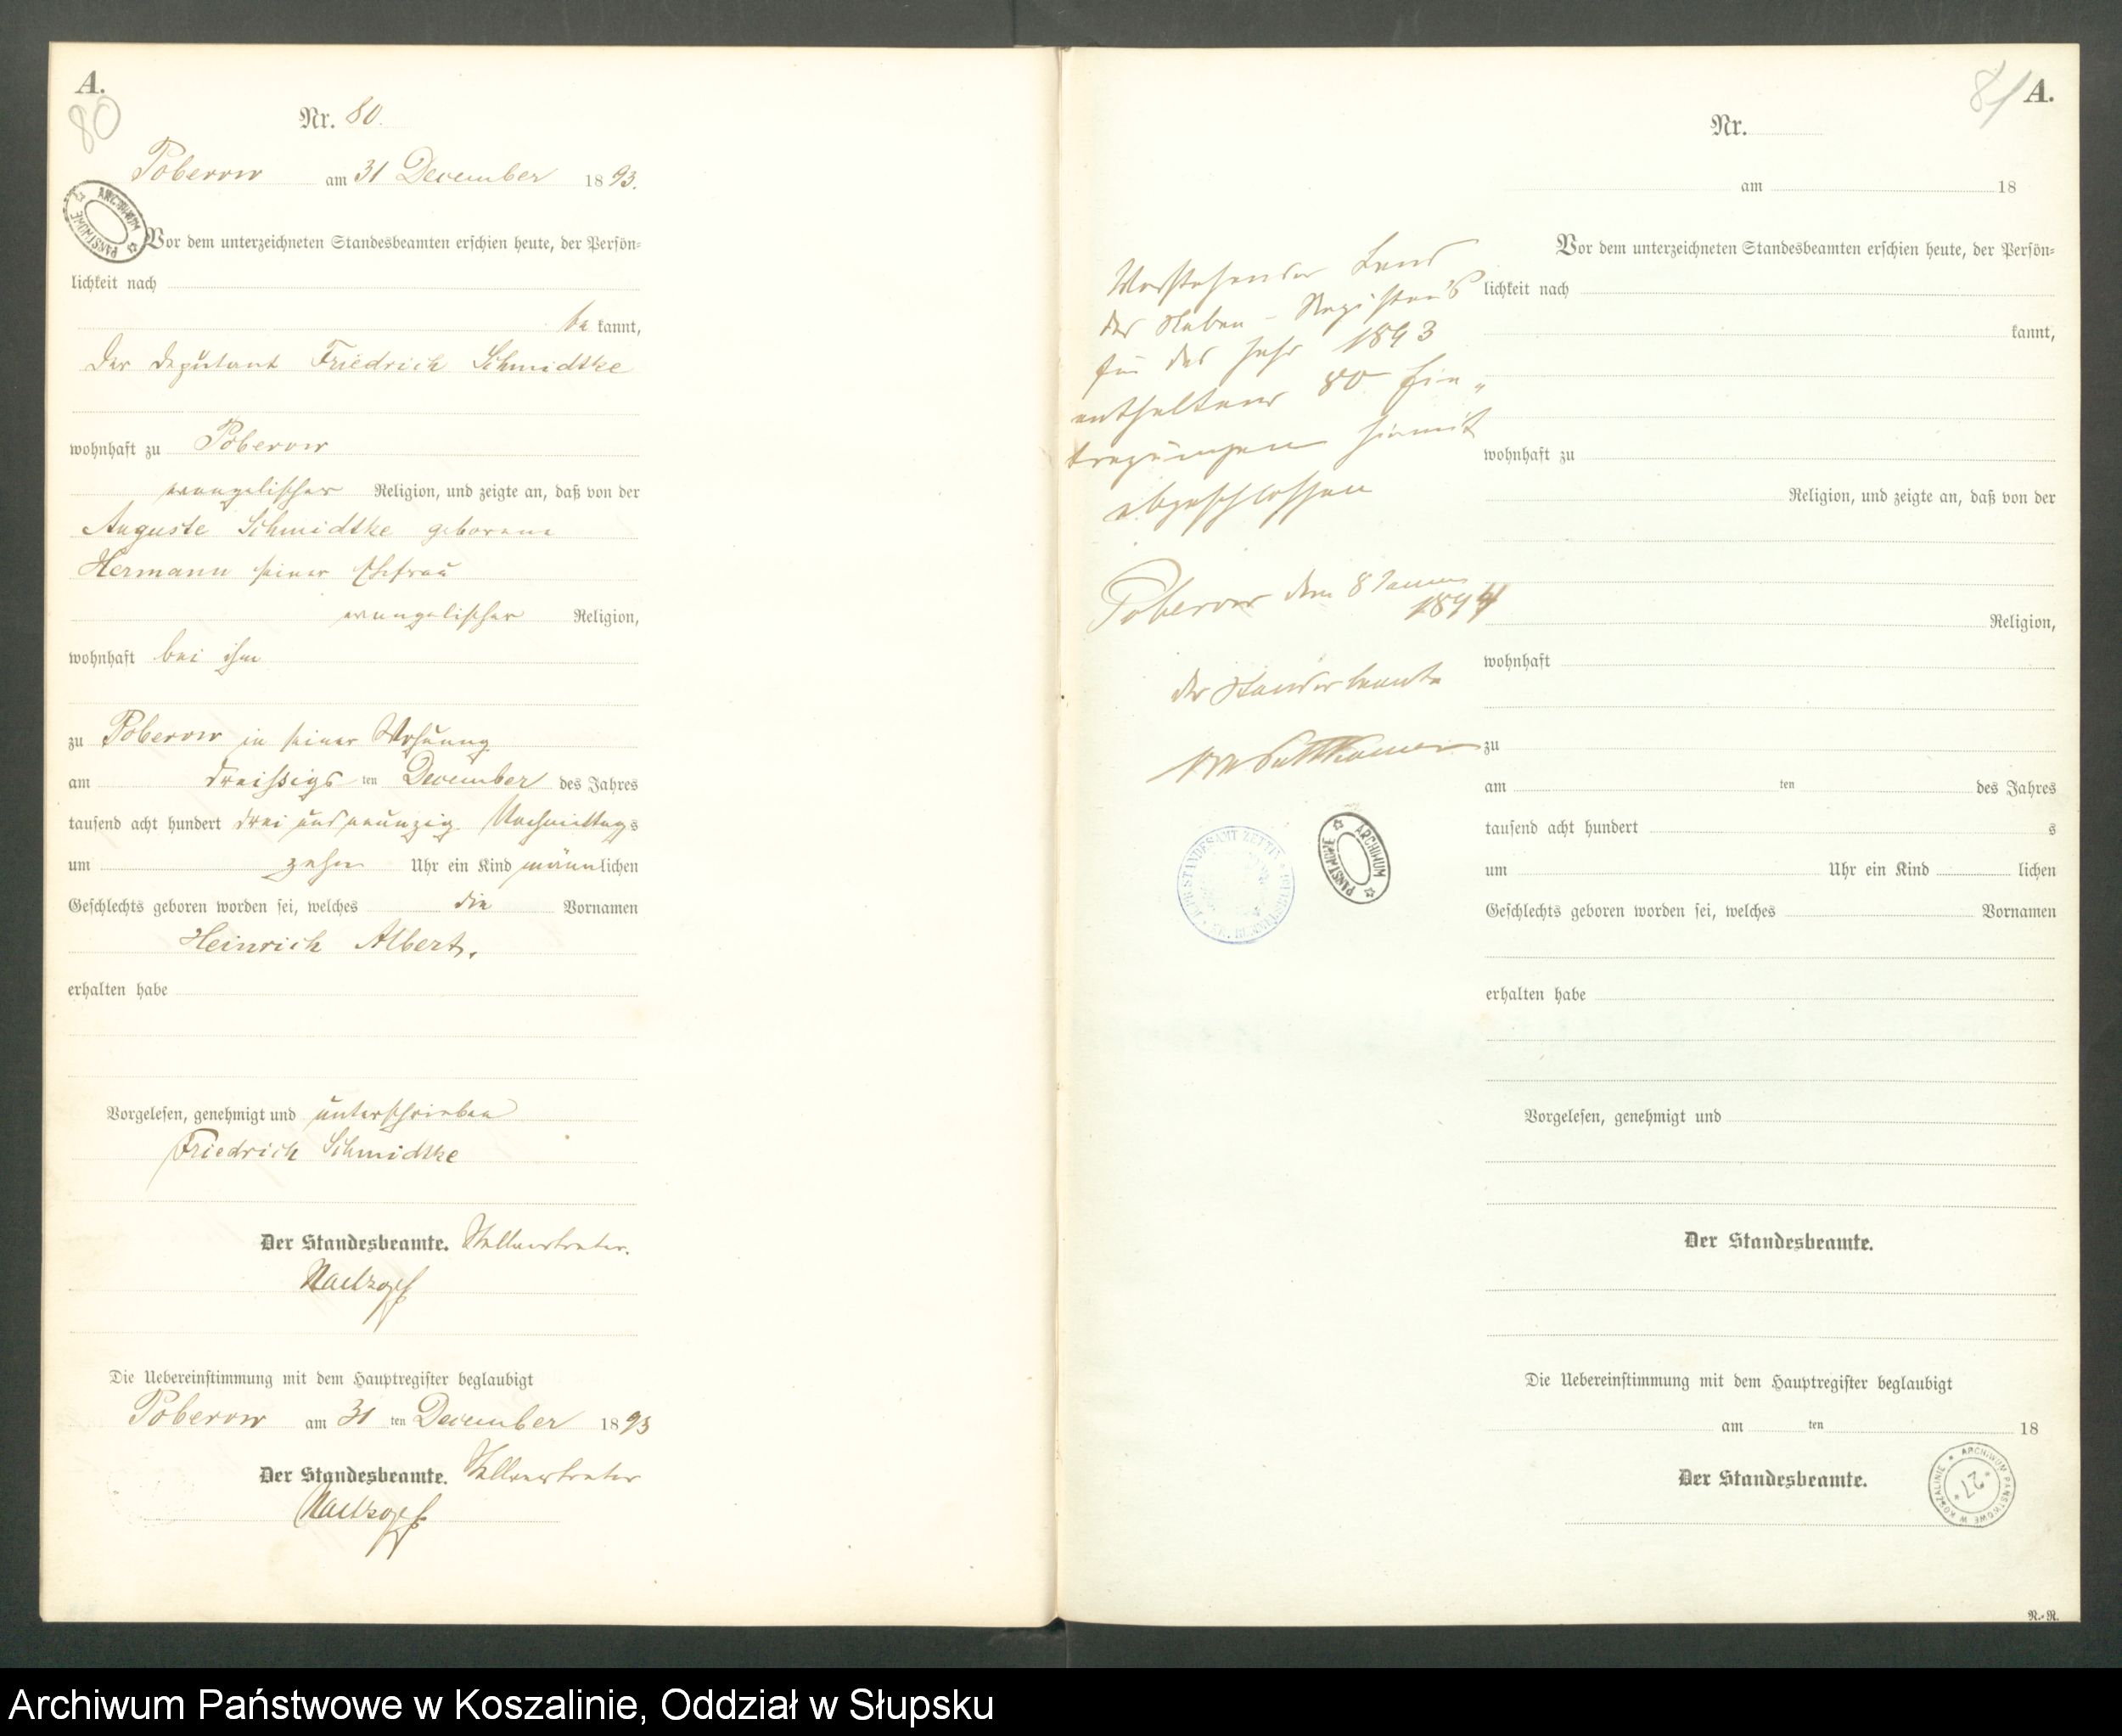 A.
80
Nr. 80.
Poberow am 31 December 1893.
ARCHIWUM PAŃSTWOWE
Vor dem unterzeichneten Standesbeamten erschien heute, der Persön=
lichkeit nach
be kannt,
Der Deputant Friedrich Schmidtke
wohnhaft zu Poberow
evangelischer Religion, und zeigte an, daß von der
Auguste Schmidtke geborene
Hermann seiner Ehefrau
evangelischer Religion,
wohnhaft bei ihm
zu Poberow in seiner Wohnung
am dreißigs ten December des Jahres
tausend acht hundert drei und neunzig Nachmittags
um zehn Uhr ein Kind männlichen
Geschlechts geboren worden sei, welches die Vornamen
Heinrich Albert.
erhalten habe
Vorgelesen, genehmigt und unterschrieben
Friedrich Schmidtke
Der Standesbeamte. Stellvertreter.
Die Uebereinstimmung mit dem Hauptregister beglaubigt
Poberow am 31 ten December 1893
Der Standesbeamte. Stellvertreter
81 A.
Nr.
am 18
Vor dem unterzeichneten Standesbeamten erschien heute, der Persön=
lichkeit nach
kannt,
wohnhaft zu
Religion, und zeigte an, daß von der
Religion,
wohnhaft
zu
am ten des Jahres
tausend acht hundert s
um Uhr ein Kind lichen
Geschlechts geboren worden sei, welches Vornamen
erhalten habe
Vorgelesen, genehmigt und
Der Standesbeamte.
Die Uebereinstimmung mit dem Hauptregister beglaubigt
am ten 18
Der Standesbeamte.
ARCHIWUM PAŃSTWOWE W KOSZALINIE
27
N.-R.
Vorstehender Band
des Neben-Registers
für das Jahr 1893
enthaltend 80 Ein„
tragungen hiermit
abgeschlossen
Poberow den 8 Januar
1894
der Standesbeamte
ARCHIWUM PAŃSTWOWE
Archiwum Państwowe w Koszalinie, Oddział w Słupsku